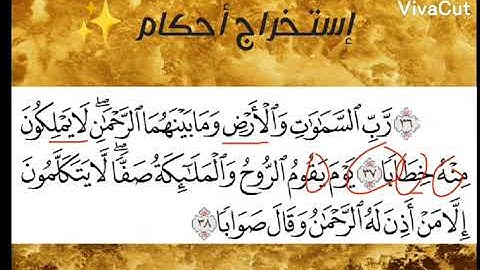 VivaCut
إستخراج أحكام
٣٦ رَّبِّ ٱلسَّمَٰوَٰتِ وَٱلْأَرْضِ وَمَا بَيْنَهُمَا ٱلرَّحْمَٰنِۖ لَا يَمْلِكُونَ
مِنْهُ خِطَابًا ٣٧ يَوْمَ يَقُومُ ٱلرُّوحُ وَٱلْمَلَٰٓئِكَةُ صَفًّاۖ لَّا يَتَكَلَّمُونَ
إِلَّا مَنْ أَذِنَ لَهُ ٱلرَّحْمَٰنُ وَقَالَ صَوَابًا ٣٨